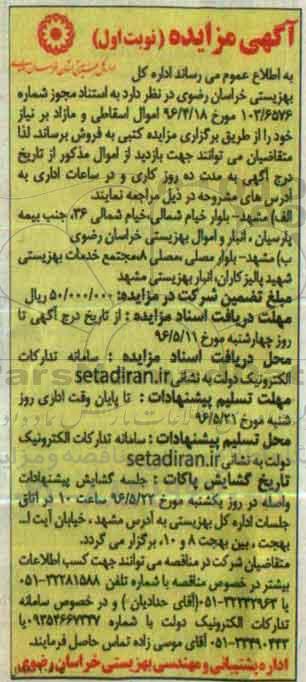 آگهی مزایده (نوبت اول)
به اطلاع عموم می رساند اداره کل
بهزیستی خراسان رضوی در نظر دارد به استناد مجوز شماره
۱۰۲/۶۵۷۶ مورخ ۹۶/۴/۱۸ اموال اسقاطی و مازاد بر نیاز
خود را از طریق برگزاری مزایده کتبی به فروش برساند. لذا
متقاضیان می توانند جهت بازدید از اموال مذکور از تاریخ
درج آگهی به مدت ده روز کاری و در ساعات اداری به
آدرس های مشروحه در ذیل مراجعه نمایند.
الف) مشهد- بلوار خیام شمالی،خیام شمالی ۳۶، جنب بیمه
پارسیان ، انبار و اموال بهزیستی خراسان رضوی
ب) مشهد- بلوار مصلی ،مصلی ۸،مجتمع خدمات بهزیستی
شهید پالیز کاران،انبار بهزیستی مشهد
مبلغ تضمین شرکت در مزایده: ۵۰/۰۰۰/۰۰۰ ریال
مهلت دریافت اسناد مزایده : از تاریخ درج آگهی تا
روز چهارشنبه مورخ ۹۶/۵/۱۱
محل دریافت اسناد مزایده : سامانه تدارکات
الکترونیک دولت به نشانی setadiran.ir
مهلت تسلیم پیشنهادات : تا پایان وقت اداری روز
شنبه مورخ ۹۶/۵/۲۱
محل تسلیم پیشنهادات : سامانه تدارکات الکترونیک
دولت به نشانی setadiran.ir
تاریخ گشایش پاکات : جلسه گشایش پیشنهادات
واصله در روز یکشنبه مورخ ۹۶/۵/۲۲ ساعت ۱۰ در اتاق
جلسات اداره کل بهزیستی به آدرس مشهد ، خیابان آیت ا...
بهجت ، بین بهجت ۸ و ۱۰، برگزار می گردد.
متقاضیان شرکت در مناقصه می توانند جهت کسب اطلاعات
بیشتر در خصوص مناقصه با شماره تلفن ۳۲۲۸۱۵۸۸-۰۵۱
یا ۳۲۲۳۲۹۶۳-۰۵۱(آقای حدادیان ) و در خصوص سامانه
تدارکات الکترونیک دولت با شماره ۰۹۳۵۴۶۶۷۳۳۷یا
۳۳۴۹۰۴۴۳-۰۵۱ آقای موسی زاده تماس حاصل فرمایند.
اداره پشتیبانی و مهندسی بهزیستی خراسان رضوی